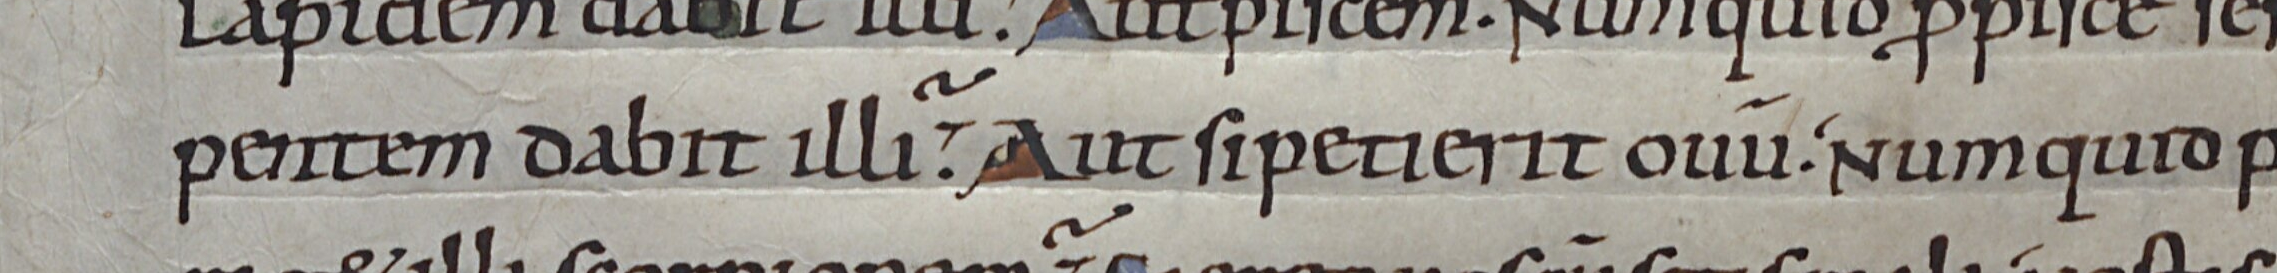 Lapidem dabit illi? Aut piscem. Numquid p̲pisce ser
pentem dabit illi? Aut sipetierit ouū. Numquid p